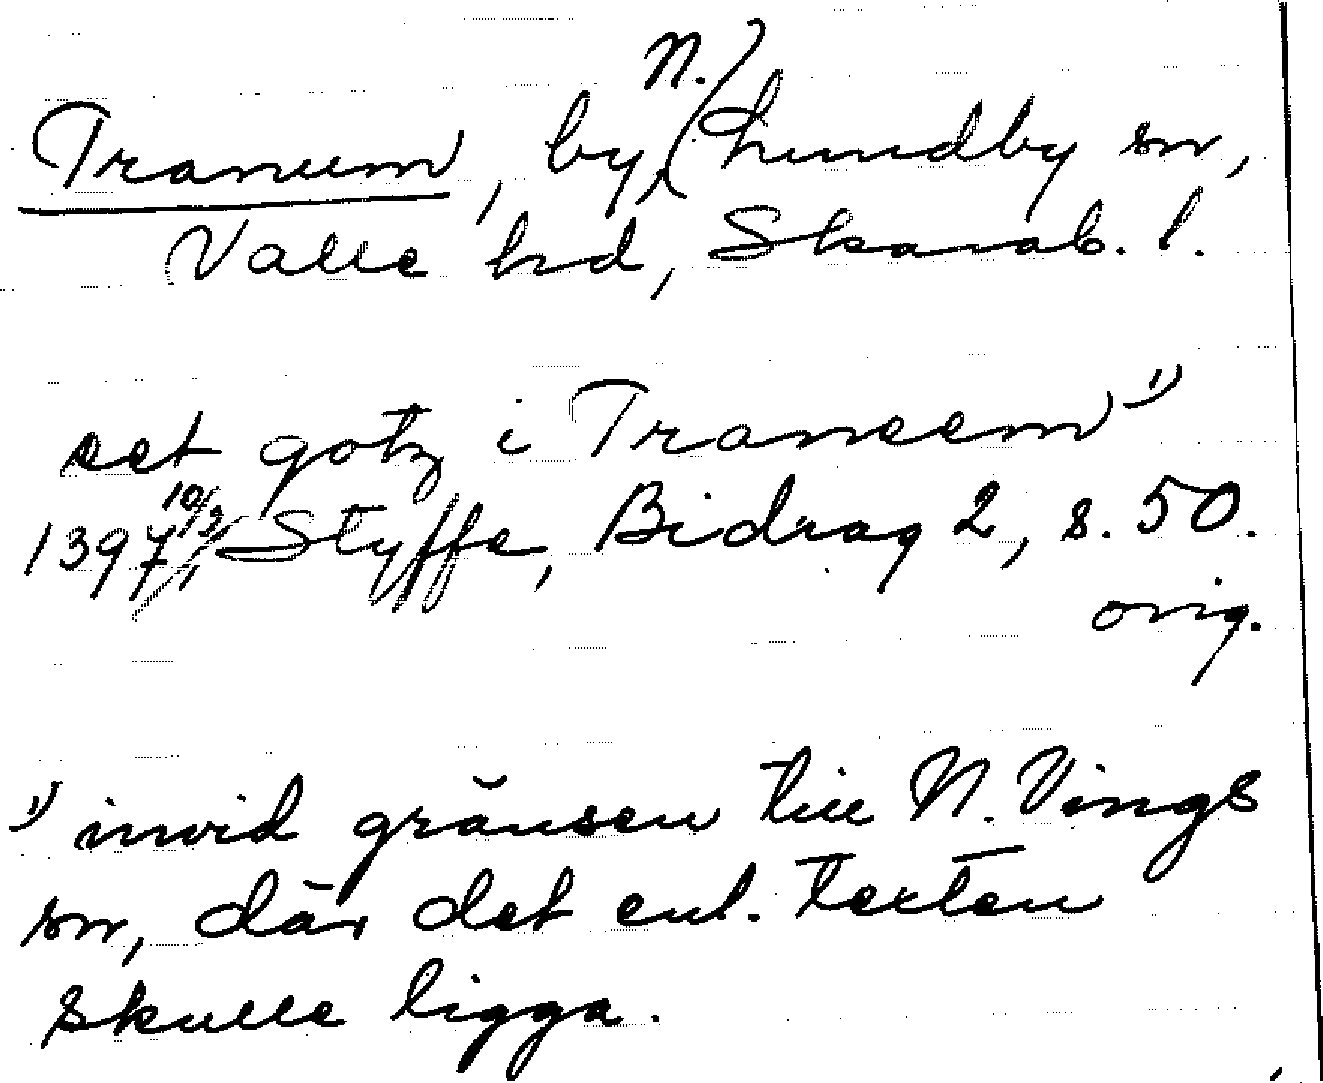 Tranum, by, N. Lundby sn,
Valle hd, Skarab. l.
eet gotz i Traneem 1)
1397 10/2 Styffe, Bidrag 2, s. 50.
orig.
1) invid gränsen till N. Vings
sn, där det enl. texten
skulle ligga.